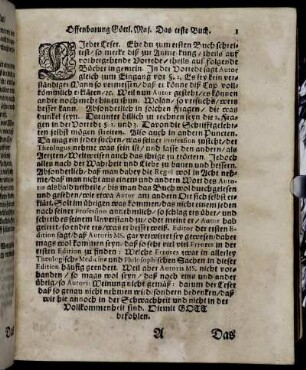 Offenbarung Göttl. Maj. Das erste Buch. 1
Lieber Leser. Ehe du zum ersten Buch schrei-
test / so mercke diß zur Anmerkung / theils auf
vorhergehende Vorrede / theils auf folgende
Bücher in gemein. In der Vorrede sagt Autor
gleich zum Eingang vor §. 1. Es sey kein ver-
ständiger Mann so vermessen / daß er könne diß Cap. voll-
kömmlich
Weil nun Autor
andre noch mehr hinzu thun. Wolan / so versuchs / wers
besser kann. Absonderlich in solchen Fragen / die was
dunkel seyn. Darunter billich zu rechnen seyn die
in der Vorrede §. und Davon die Schrifftgelehr-
ten selbst mögen streiten. Also auch in andern Puncten.
Da mag ein jeder suchen / was seiner Profession
Theologus nehme was sein ist / und lasse den andern / als
Aerzten / Weltweisen auch das übrig zu erörtern. Jedoch
alles nach der Wahrheit und Liebe zu bauen und bessern.
Absonderlich / daß man dabey die Regel wol in Acht neh-
me / daß man nicht aus einem und andern Wort des Auto-
ris alsbald urtheile / bis man das Buch wol durchgelesen
und gesehen / wie etwa Autor am andern Ort sich selbst er-
klärt. Solt im übrigen was kommen / das nicht einem jeden
nach seiner Profession annehmlich / so schlag ers über / und
schreib es seinem Unverstand zu / oder meint er / Autor hab
geirret / so ende ers / wo er besser weiß. Editor der ersten E-
dition sagt / daß Autoris MS. gar verworren gewesen / daher
mags wol kommen seyn / daß so sehr viel Errores in der
ersten Edition zu finden: Welche Errores etwa in allerley
Theologischen Medicin und Philosophischen Sachen in dieser
Edition häuffig gerendert. Weil aber Autoris MS. nicht vor-
handen / so mags wol seyn / daß noch eine und ander
übrig / so Autoris Meinung nicht gemäß: darum der Leser
daß so genau nicht nehmen wird / sondern bedenken / daß
wir hie annoch in der Schwachheit und nicht in der
Vollkommenheit sind. Hiemit GOTT
befohlen.
A Das